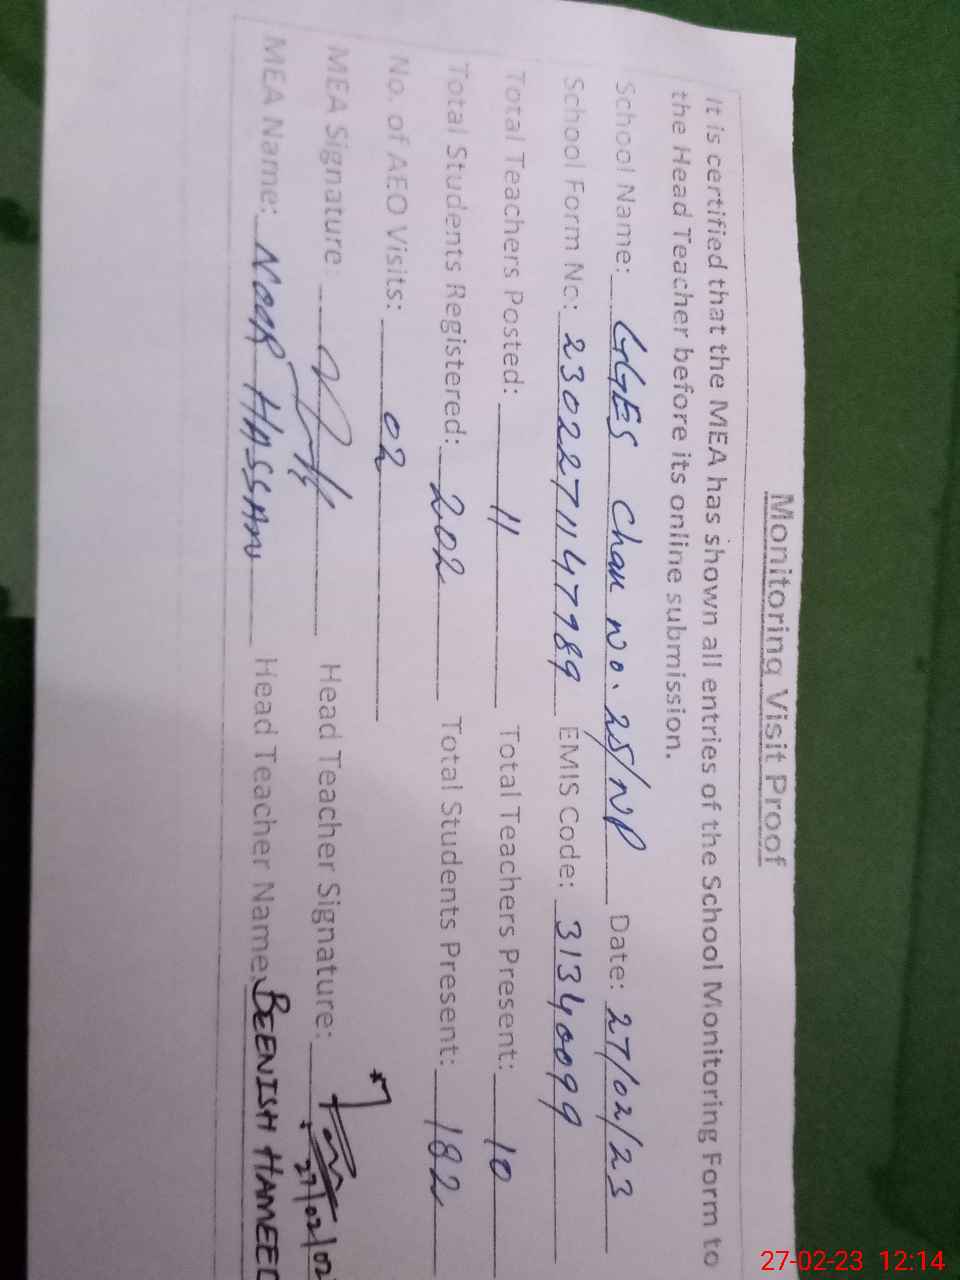 Monitoring Visit Proof
It is certified that the MEA has shown all entries of the School Monitoring Form to
the Head Teacher before its online submission.
School Name: GGES Chak No. 25/NP Date: 27/02/23
School Form No: 23022711147989 EMIS Code: 31340099
Total Teachers Posted: 11 Total Teachers Present: 10
Total Students Registered: 202 Total Students Present: 182
No. of AEO Visits: 02
MEA Signature: Head Teacher Signature:
27/02/02
MEA Name: NOOR HASSAN Head Teacher Name: BEENISH HAMEED
27-02-23 12:14